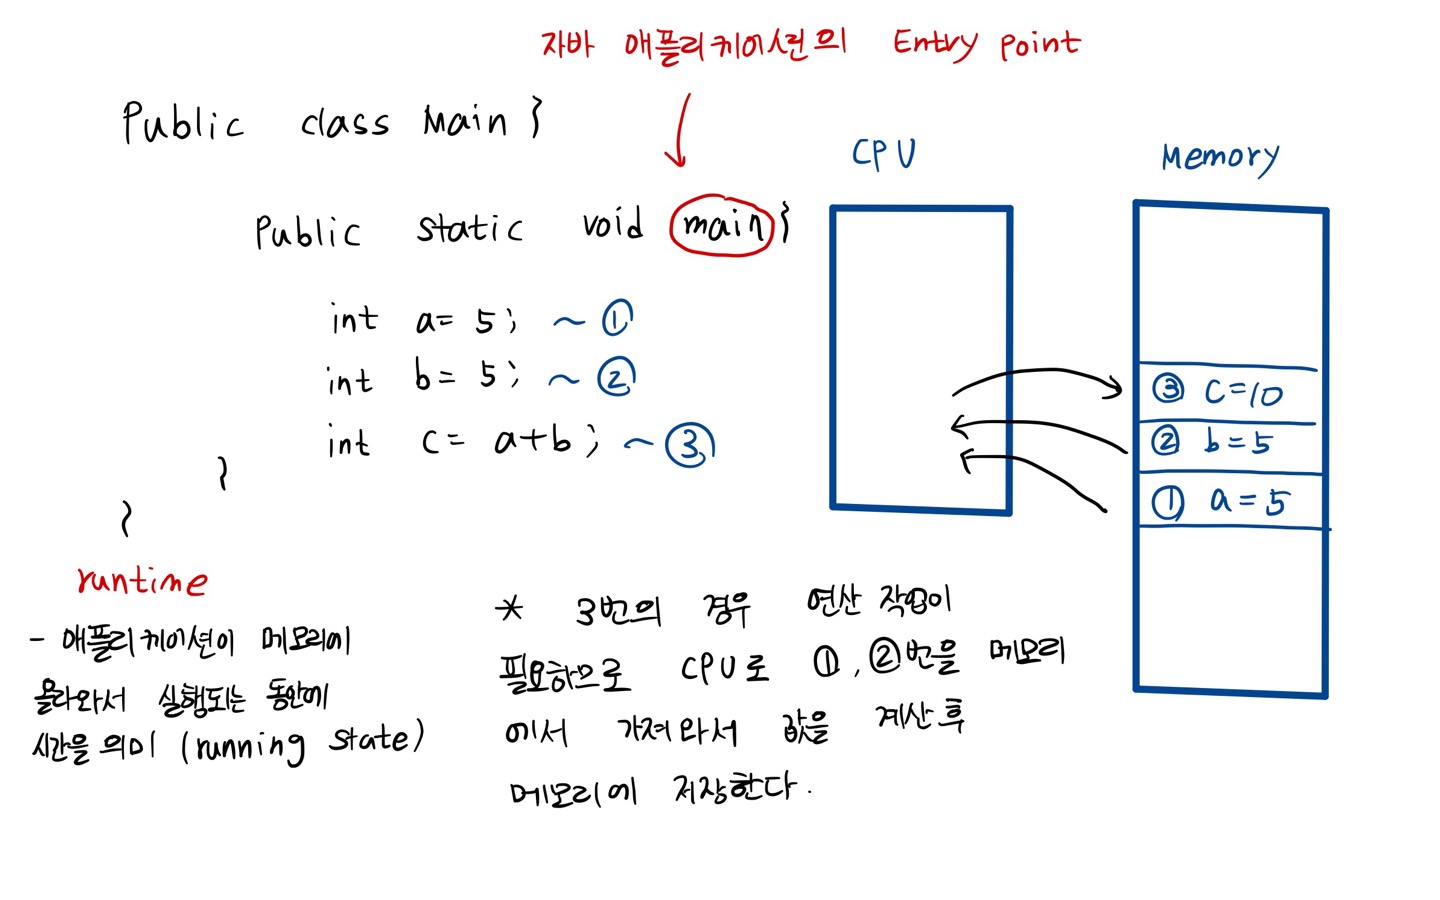 자바 애플리케이션의 Entry point
Public class Main }
Public static void main }
int a = 5; ~ ①
int b = 5; ~ ②
int c = a+b; ~ ③
}
}
CPU
Memory
③ C=10
② b=5
① a=5
runtime
- 애플리케이션이 메모리에
올라와서 실행되는 동안에
시간을 의미 (running state)
* 3번의 경우 연산 작업이
필요하므로 CPU로 ①, ②번을 메모리
에서 가져와서 값을 계산 후
메모리에 저장한다.